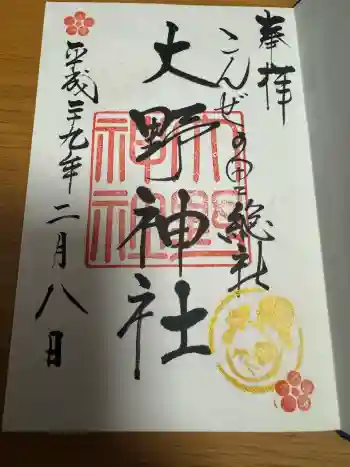 奉拝
こんぜの里総社
大野神社
平成二十九年二月八日
大野
神社